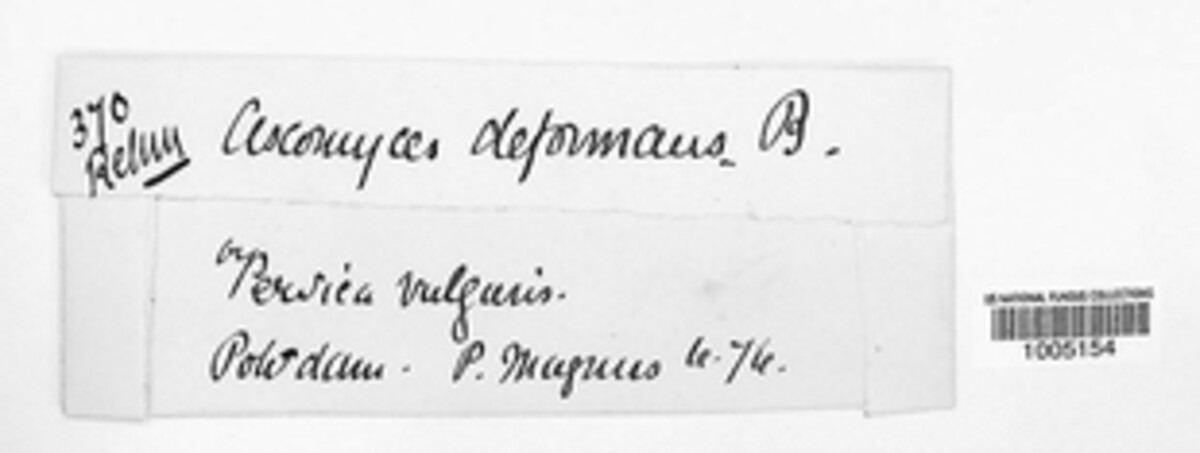 370
Rehm
Ascomyces deformans. B.
on Persica vulgaris.
Potsdam. P. Magnus
US NATIONAL FUNGUS COLLECTIONS
1005154